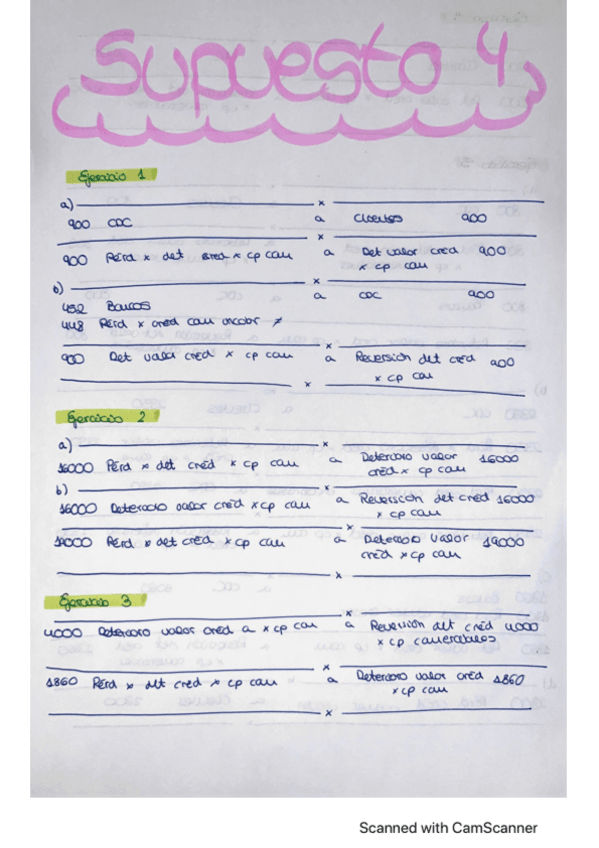 Supuesto 4
Ejercicio 1
a) x
900 CDC a Clientes 900
x
900 Pérd x det cred x cp com a Det valor cred 900
x cp com
b) x
452 Bancos a CDC 900
448 Pérd x cred com incobr ≠
x
900 Det valor créd x cp com a Reversión det créd 900
x cp com
x
Ejercicio 2
a) x
16000 Pérd x det créd x cp com a Deterioro valor 16000
créd x cp com
b) x
16000 Deterioro valor créd x cp com a Reversión det créd 16000
x cp com
x
19000 Pérd x det créd x cp com a Deterioro valor 19000
créd x cp com
x
Ejercicio 3
x
4000 Deterioro valor créd a x cp com a Reversión det créd 4000
x cp comerciales
x
1860 Pérd x det créd x cp com a Deterioro valor créd 1860
x cp com
x
Scanned with CamScanner